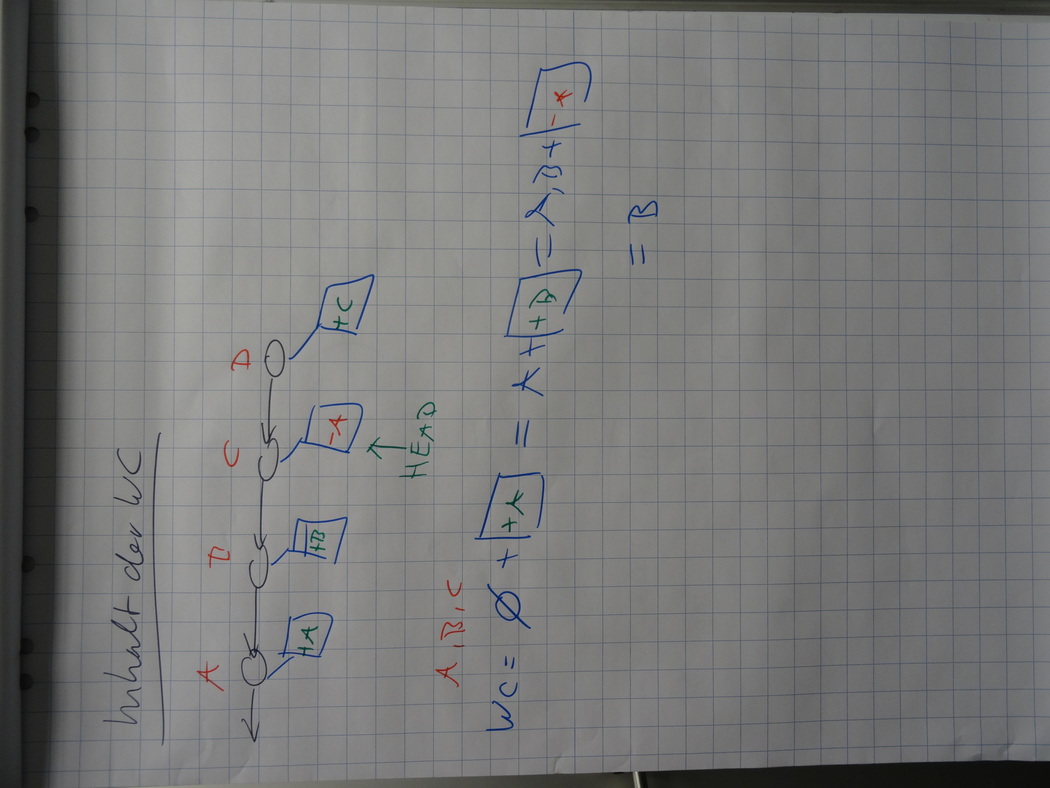 Inhalt der WC
A B C D
+A +B -A +C
HEAD
A, B, C
WC = ∅ + +A = A + +B = A, B + -A
= B